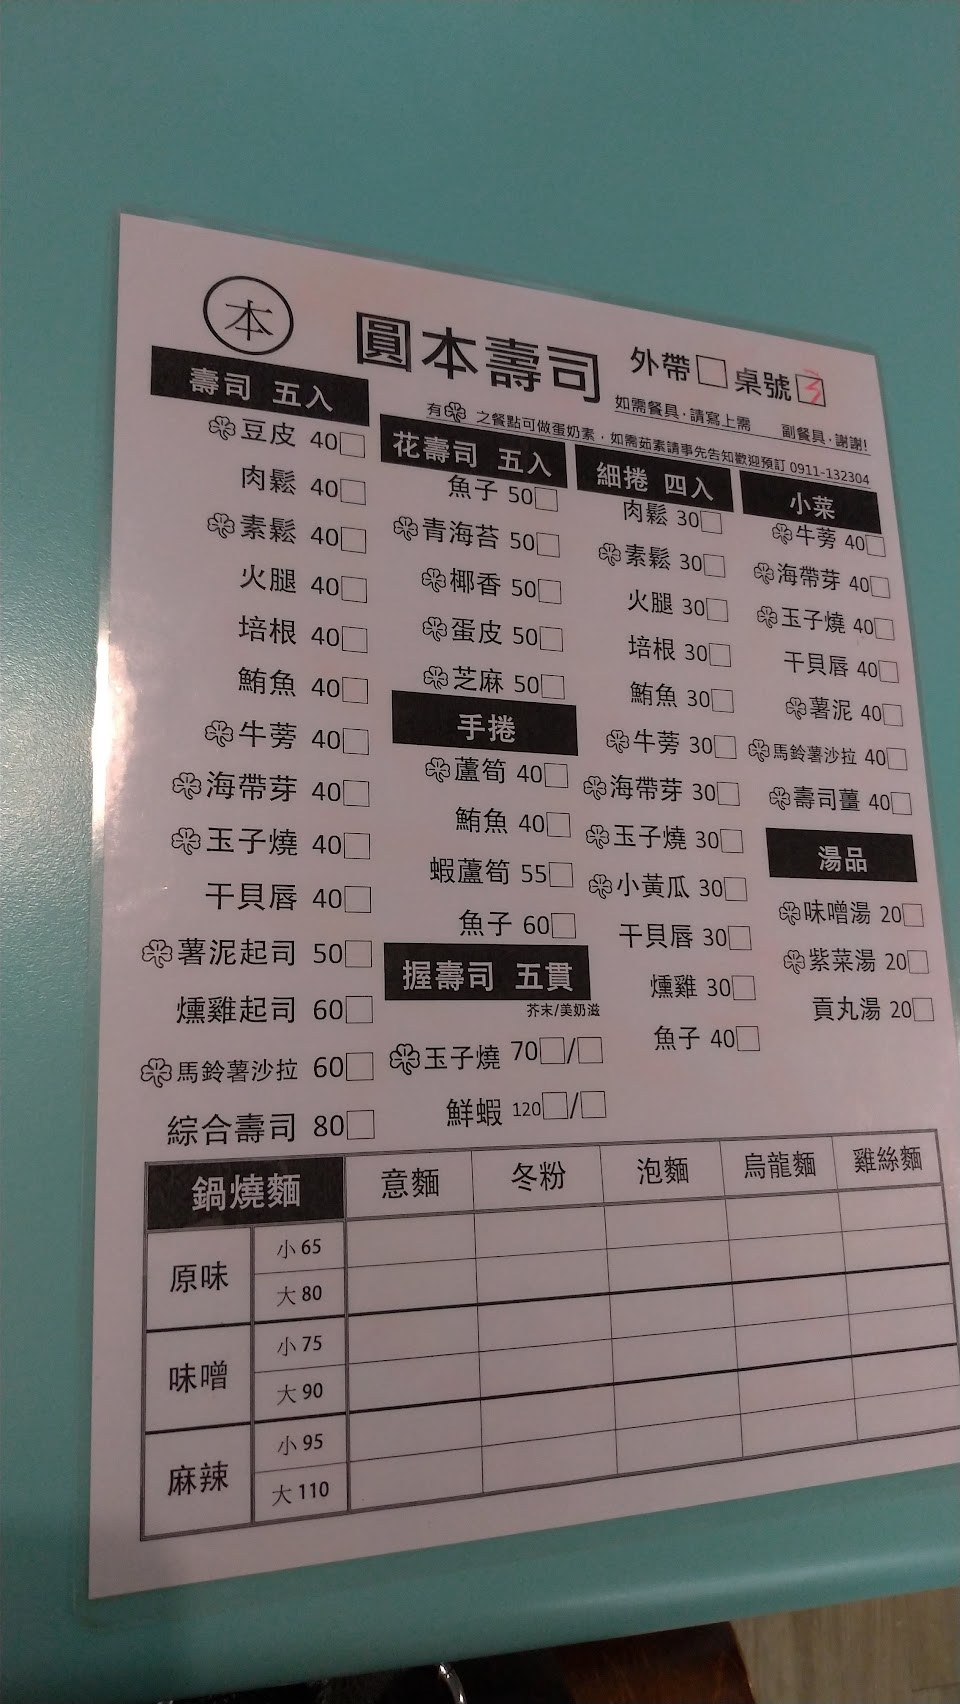 本
圓本壽司
外帶 桌號 3
如需餐具,請寫上需 副餐具,謝謝!
有 之餐點可做蛋奶素,如需茹素請事先告知歡迎預訂 0911-132304
壽司 五入
豆皮 40
肉鬆 40
素鬆 40
火腿 40
培根 40
鮪魚 40
牛蒡 40
海帶芽 40
玉子燒 40
干貝唇 40
薯泥起司 50
燻雞起司 60
馬鈴薯沙拉 60
綜合壽司 80
花壽司 五入
魚子 50
青海苔 50
椰香 50
蛋皮 50
芝麻 50
手捲
蘆筍 40
鮪魚 40
蝦蘆筍 55
魚子 60
握壽司 五貫
芥末/美奶滋
玉子燒 70 /
鮮蝦 120 /
細捲 四入
肉鬆 30
素鬆 30
火腿 30
培根 30
鮪魚 30
牛蒡 30
海帶芽 30
玉子燒 30
小黃瓜 30
干貝唇 30
燻雞 30
魚子 40
小菜
牛蒡 40
海帶芽 40
玉子燒 40
干貝唇 40
薯泥 40
馬鈴薯沙拉 40
壽司薑 40
湯品
味噌湯 20
紫菜湯 20
貢丸湯 20
鍋燒麵 意麵 冬粉 泡麵 烏龍麵 雞絲麵
原味 小 65
大 80
味噌 小 75
大 90
麻辣 小 95
大 110